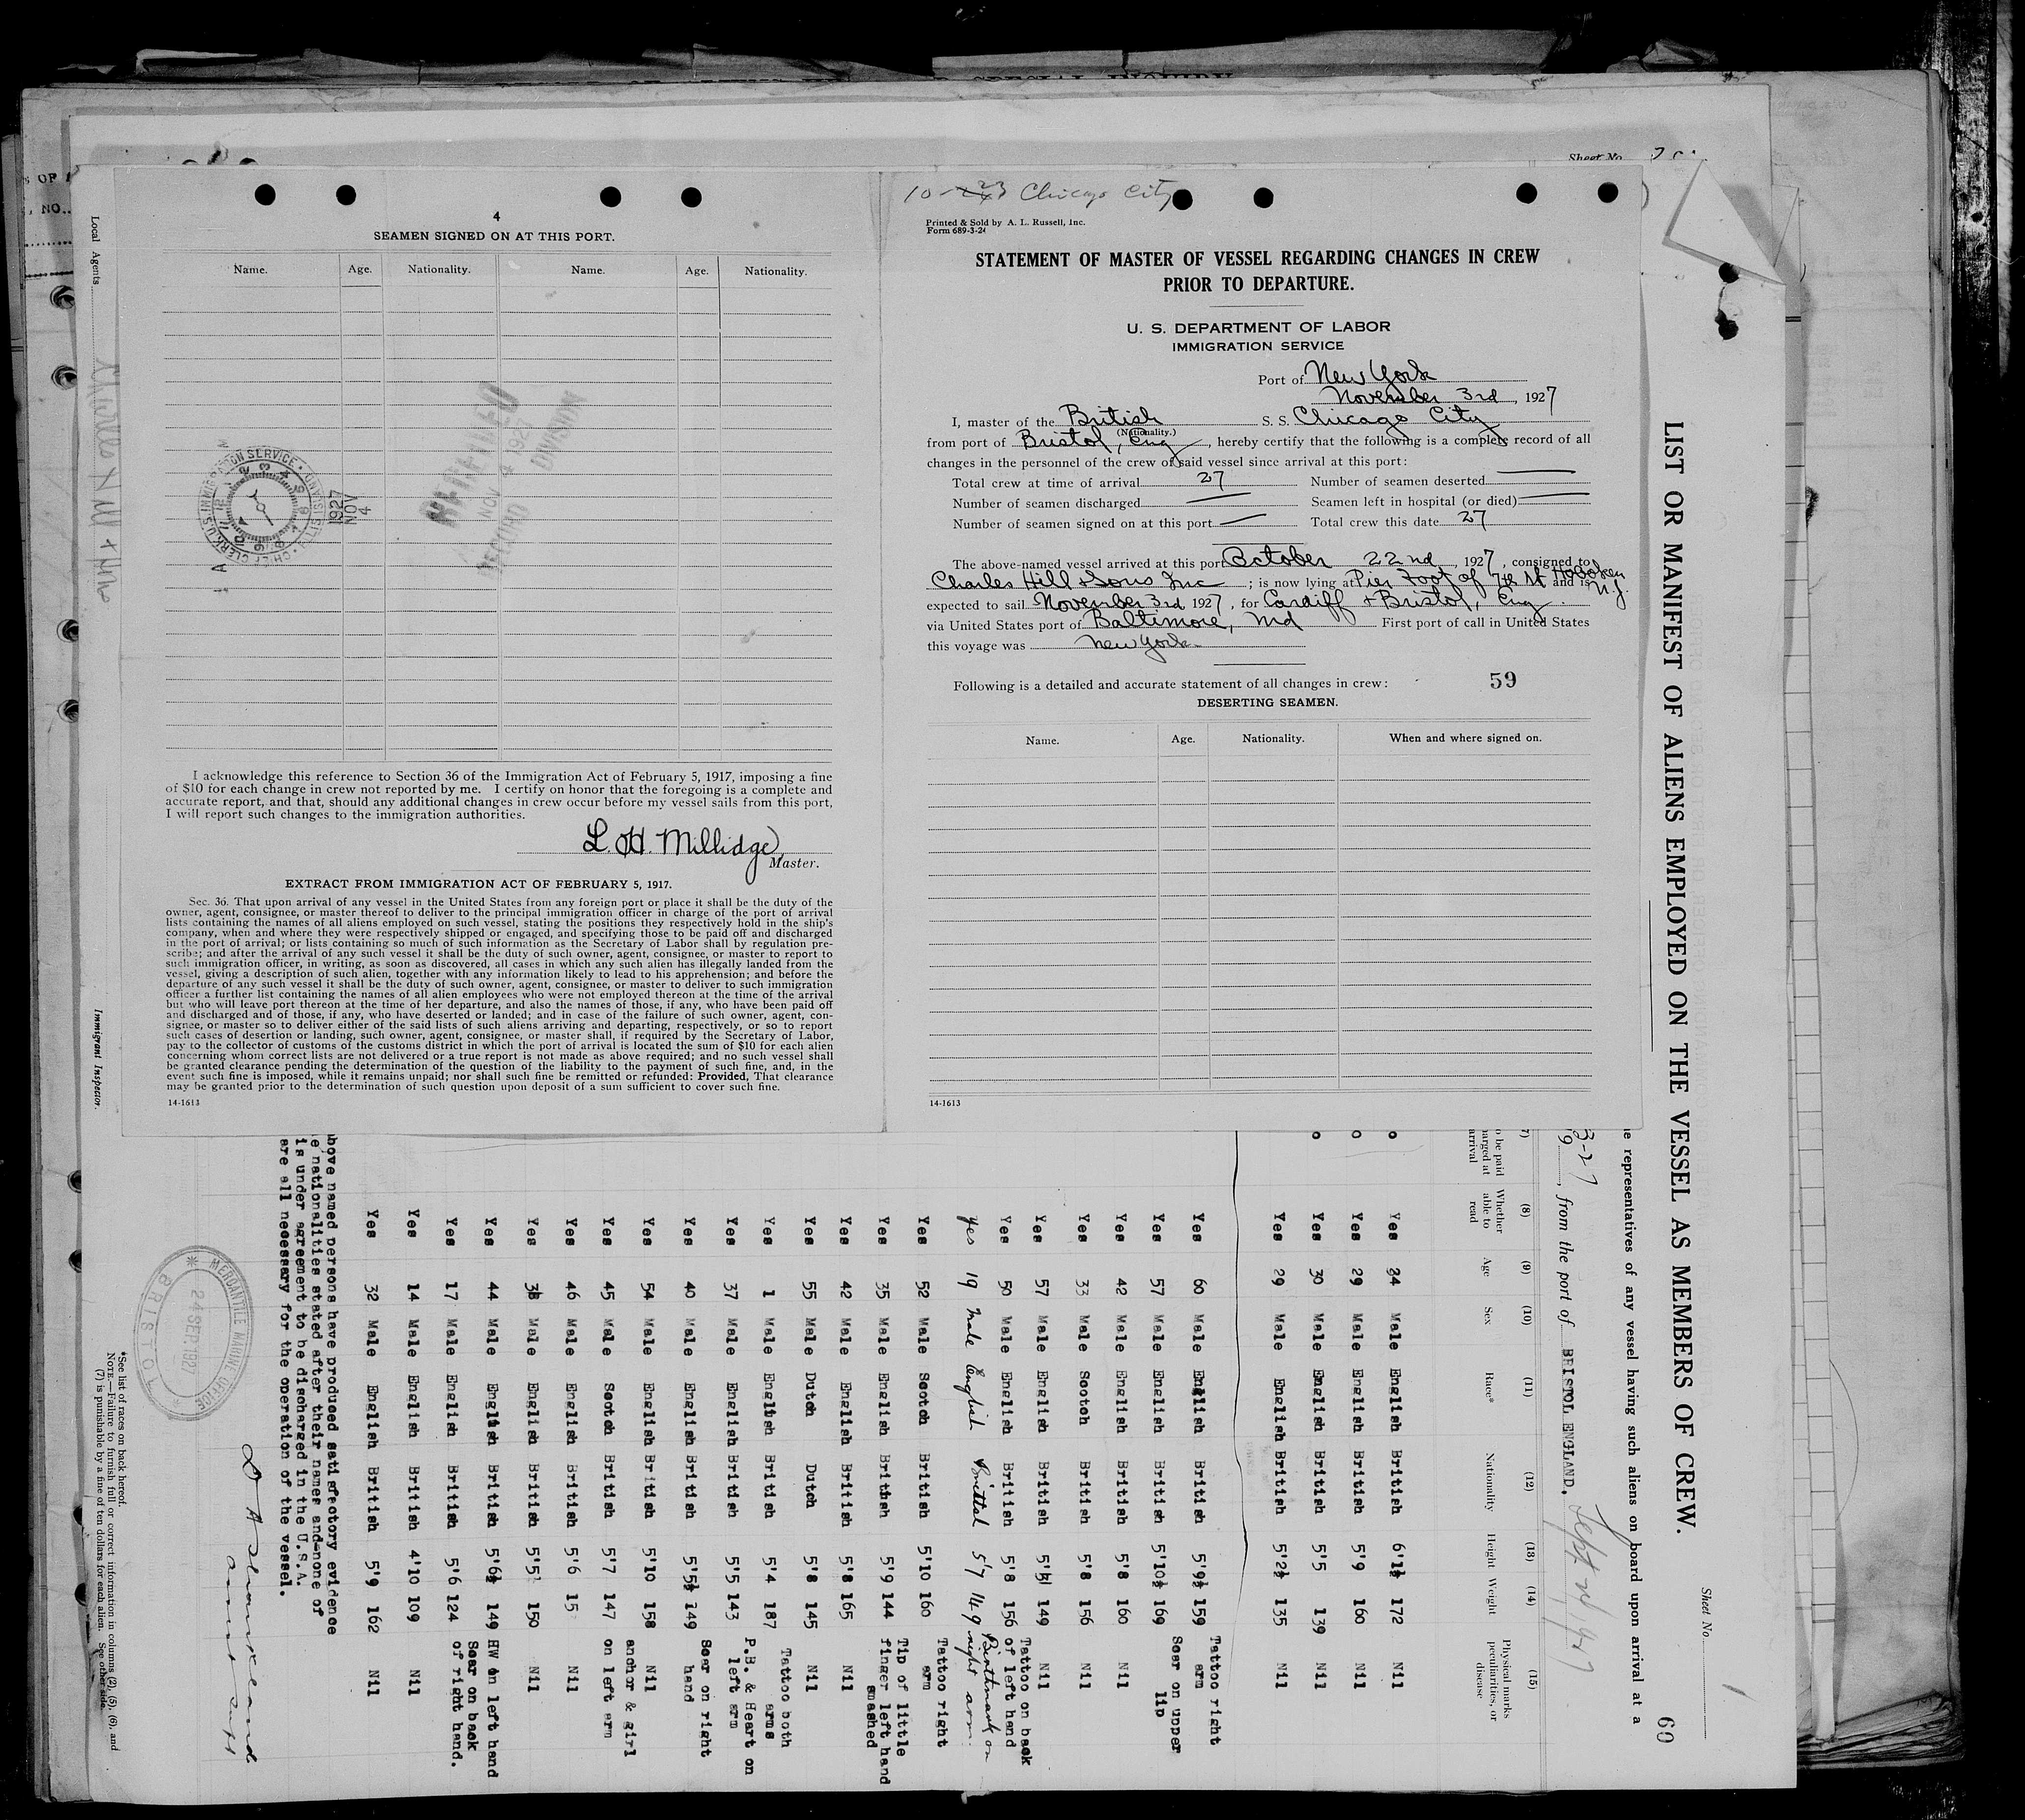 4
SEAMEN SIGNED ON AT THIS PORT.
Name. Age. Nationality. Name. Age. Nationality.
NOV 4 1927
DIVISION
1927
NOV
4
I acknowledge this reference to Section 36 of the Immigration Act of February 5, 1917, imposing a fine
of $10 for each change in crew not reported by me. I certify on honor that the foregoing is a complete and
accurate report, and that, should any additional changes in crew occur before my vessel sails from this port,
I will report such changes to the immigration authorities.
L. H. Millidge
Master.
EXTRACT FROM IMMIGRATION ACT OF FEBRUARY 5, 1917.
Sec. 36. That upon arrival of any vessel in the United States from any foreign port or place it shall be the duty of the
owner, agent, consignee, or master thereof to deliver to the principal immigration officer in charge of the port of arrival
lists containing the names of all aliens employed on such vessel, stating the positions they respectively hold in the ship's
company, when and where they were respectively shipped or engaged, and specifying those to be paid off and discharged
in the port of arrival; or lists containing so much of such information as the Secretary of Labor shall by regulation pre-
scribe; and after the arrival of any such vessel it shall be the duty of such owner, agent, consignee, or master to report to
such immigration officer, in writing, as soon as discovered, all cases in which any such alien has illegally landed from the
vessel, giving a description of such alien, together with any information likely to lead to his apprehension; and before the
departure of any such vessel it shall be the duty of such owner, agent, consignee, or master to deliver to such immigration
officer a further list containing the names of all alien employees who were not employed thereon at the time of the arrival
but who will leave port thereon at the time of her departure, and also the names of those, if any, who have been paid off
and discharged and of those, if any, who have deserted or landed; and in case of the failure of such owner, agent, con-
signee, or master so to deliver either of the said lists of such aliens arriving and departing, respectively, or so to report
such cases of desertion or landing, such owner, agent, consignee, or master shall, if required by the Secretary of Labor,
pay to the collector of customs of the customs district in which the port of arrival is located the sum of $10 for each alien
concerning whom correct lists are not delivered or a true report is not made as above required; and no such vessel shall
be granted clearance pending the determination of the question of the liability to the payment of such fine, and, in the
event such fine is imposed, while it remains unpaid; nor shall such fine be remitted or refunded: Provided, That clearance
may be granted prior to the determination of such question upon deposit of a sum sufficient to cover such fine.
14-1613
10-23 Chicago City
Printed & Sold by A. L. Russell, Inc.
Form 689-3-24
STATEMENT OF MASTER OF VESSEL REGARDING CHANGES IN CREW
PRIOR TO DEPARTURE.
U. S. DEPARTMENT OF LABOR
IMMIGRATION SERVICE
Port of New York
November 3rd, 1927
I, master of the British S. S. Chicago City
(Nationality.)
from port of Bristol, Eng, hereby certify that the following is a complete record of all
changes in the personnel of the crew of said vessel since arrival at this port:
Total crew at time of arrival 27 Number of seamen deserted
Number of seamen discharged Seamen left in hospital (or died)
Number of seamen signed on at this port Total crew this date 27
The above-named vessel arrived at this port October 22nd, 1927, consigned to
Charles Hill & Sons Inc; is now lying at Pier Foot of 7th St Hoboken N.J. and is
expected to sail November 3rd 1927, for Cardiff + Bristol, Eng.
via United States port of Baltimore, Md First port of call in United States
this voyage was New York
Following is a detailed and accurate statement of all changes in crew: 59
DESERTING SEAMEN.
Name. Age. Nationality. When and where signed on.
14-1613
Sheet No.
60
LIST OR MANIFEST OF ALIENS EMPLOYED ON THE VESSEL AS MEMBERS OF CREW.
representatives of any vessel having such aliens on board upon arrival at a
19 , from the port of BRISTOL ENGLAND.
(8) (9) (10) (11) (12) (13) (14) (15)
Whether able to read Age Sex Race* Nationality Height Weight Physical marks peculiarities, or disease
Yes 34 Male English British 6'1½ 172 Nil
Yes 29 Male English British 5'9 160 Nil
Yes 30 Male English British 5'5 139 Nil
Yes 29 Male English British 5'2½ 135 Nil
Yes 60 Male English British 5'9½ 159 Tattoo right arm
Yes 57 Male English British 5'10½ 169 Scar on upper lip
Yes 42 Male English British 5'8 160 Nil
Yes 33 Male Scotch British 5'8 156 Nil
Yes 57 Male English British 149 Nil
Yes 50 Male English British 5'8 156 Tattoo on back of left hand
Yes 19 Male English British 5'7 149 Birthmark on right arm.
Yes 52 Male Scotch British 5'10 160 Tattoo right arm
Yes 35 Male English British 5'9 144 Tip of little finger left hand smashed
Yes 42 Male English British 5'8 165 Nil
Yes 55 Male Dutch Dutch 5'8 145 Nil
Yes 1 Male English British 5'4 187 Tattoo both arms
Yes 37 Male English British 5'5 143 P.B. & Heart on left arm
Yes 40 Male English British 5'5½ 149 Scar on right hand
Yes 54 Male English British 5'10 158 Nil
Yes 45 Male Scotch British 5'7 147 anchor & girl on left arm
Yes 46 Male English British 5'6 15 Nil
Yes 38 Male English British 5'5 150 Nil
Yes 44 Male English British 5'6½ 149 HW on left hand
Yes 17 Male English British 5'6 124 Scar on back of right hand.
Yes 14 Male English British 4'10 109 Nil
Yes 32 Male English British 5'9 162 Nil
above named persons have produced satisfactory evidence
nationalities stated after their names and none of
is under agreement to be discharged in the U.S.A.
are all necessary for the operation of the vessel.
MERCANTILE MARINE OFFICE
24 SEP. 1927
BRISTOL
*See list of races on back hereof.
NOTE.—Failure to furnish full or correct information in columns (2), (5), (6), and
(7) is punishable by a fine of ten dollars for each alien. See other side.
Local Agents
Immigrant Inspector.